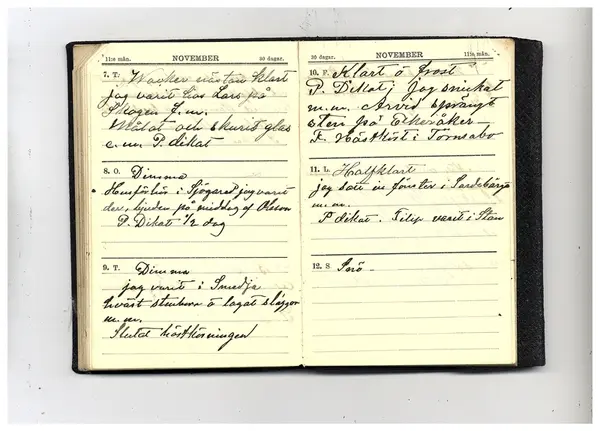 11:e mån. NOVEMBER 30 dagar.
7. T. Vacker nästan klart
jag varit hos Lars på
Skogen f.m.
Målat och skurit glas
e.m. P. dikat
8. O. Dimma
Husförhör i Sjögared jag varit
der, bjuden på middag af Olsson
P. Dikat 1/2 dag
9. T. Dimma
jag varit i Smedja
hväst stenborr o lagat släggor
m.m.
Slutat höstkörningen
30 dagar. NOVEMBER 11:e mån.
10. F. Klart o frost
P. Dikat, jag snickat
m.m. Arvid sprängt
sten på Ekeråker
F. Hästköst i Törnsabo
11. L. Halfklart
jag satt in fönster i
m.m.
P dikat. Filip varit i Stan
12. S Snö